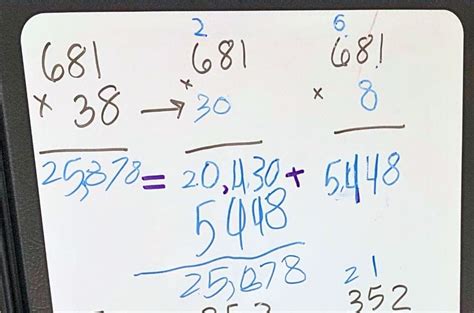 2 6
681 681 681
× 38 → × 30 × 8
25,878 = 20,430 + 5,448
5448
25,878
2 1
352